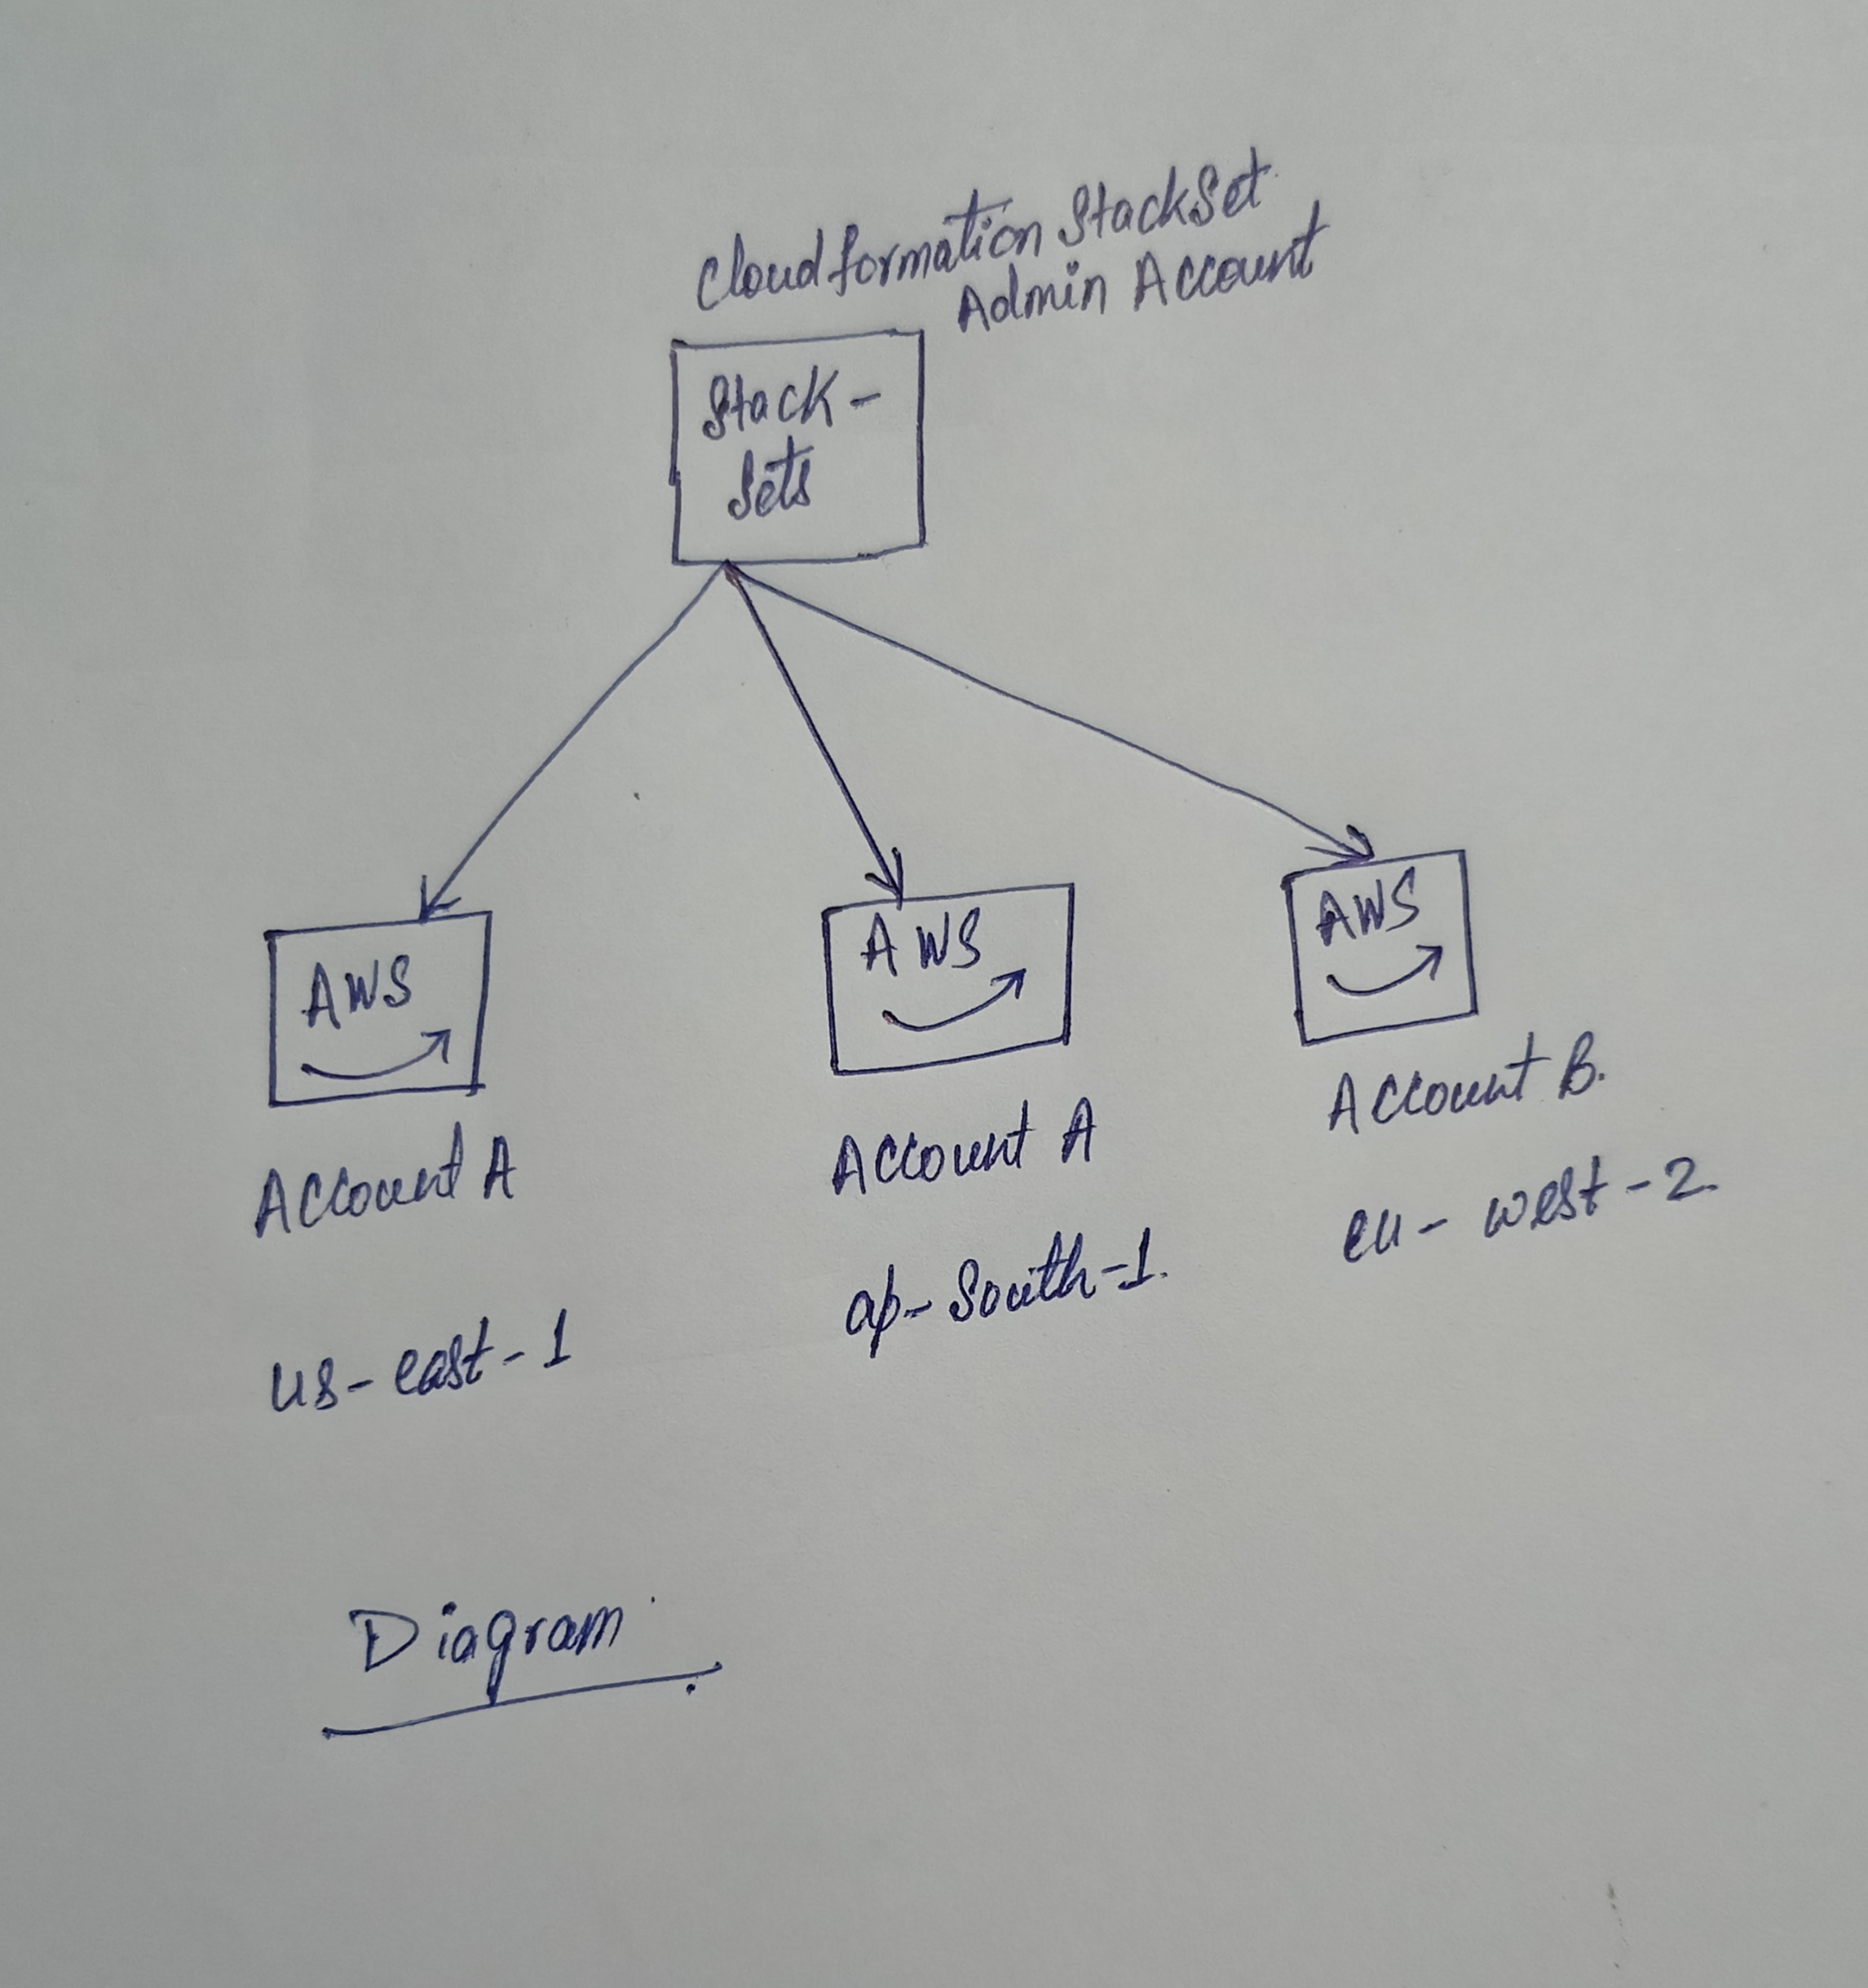 Cloudformation StackSet
Admin Account
Stack-
Sets
AWS
AWS
AWS
Account A
Account A
Account B.
us-east-1
ap-South-1.
eu-west-2.
Diagram